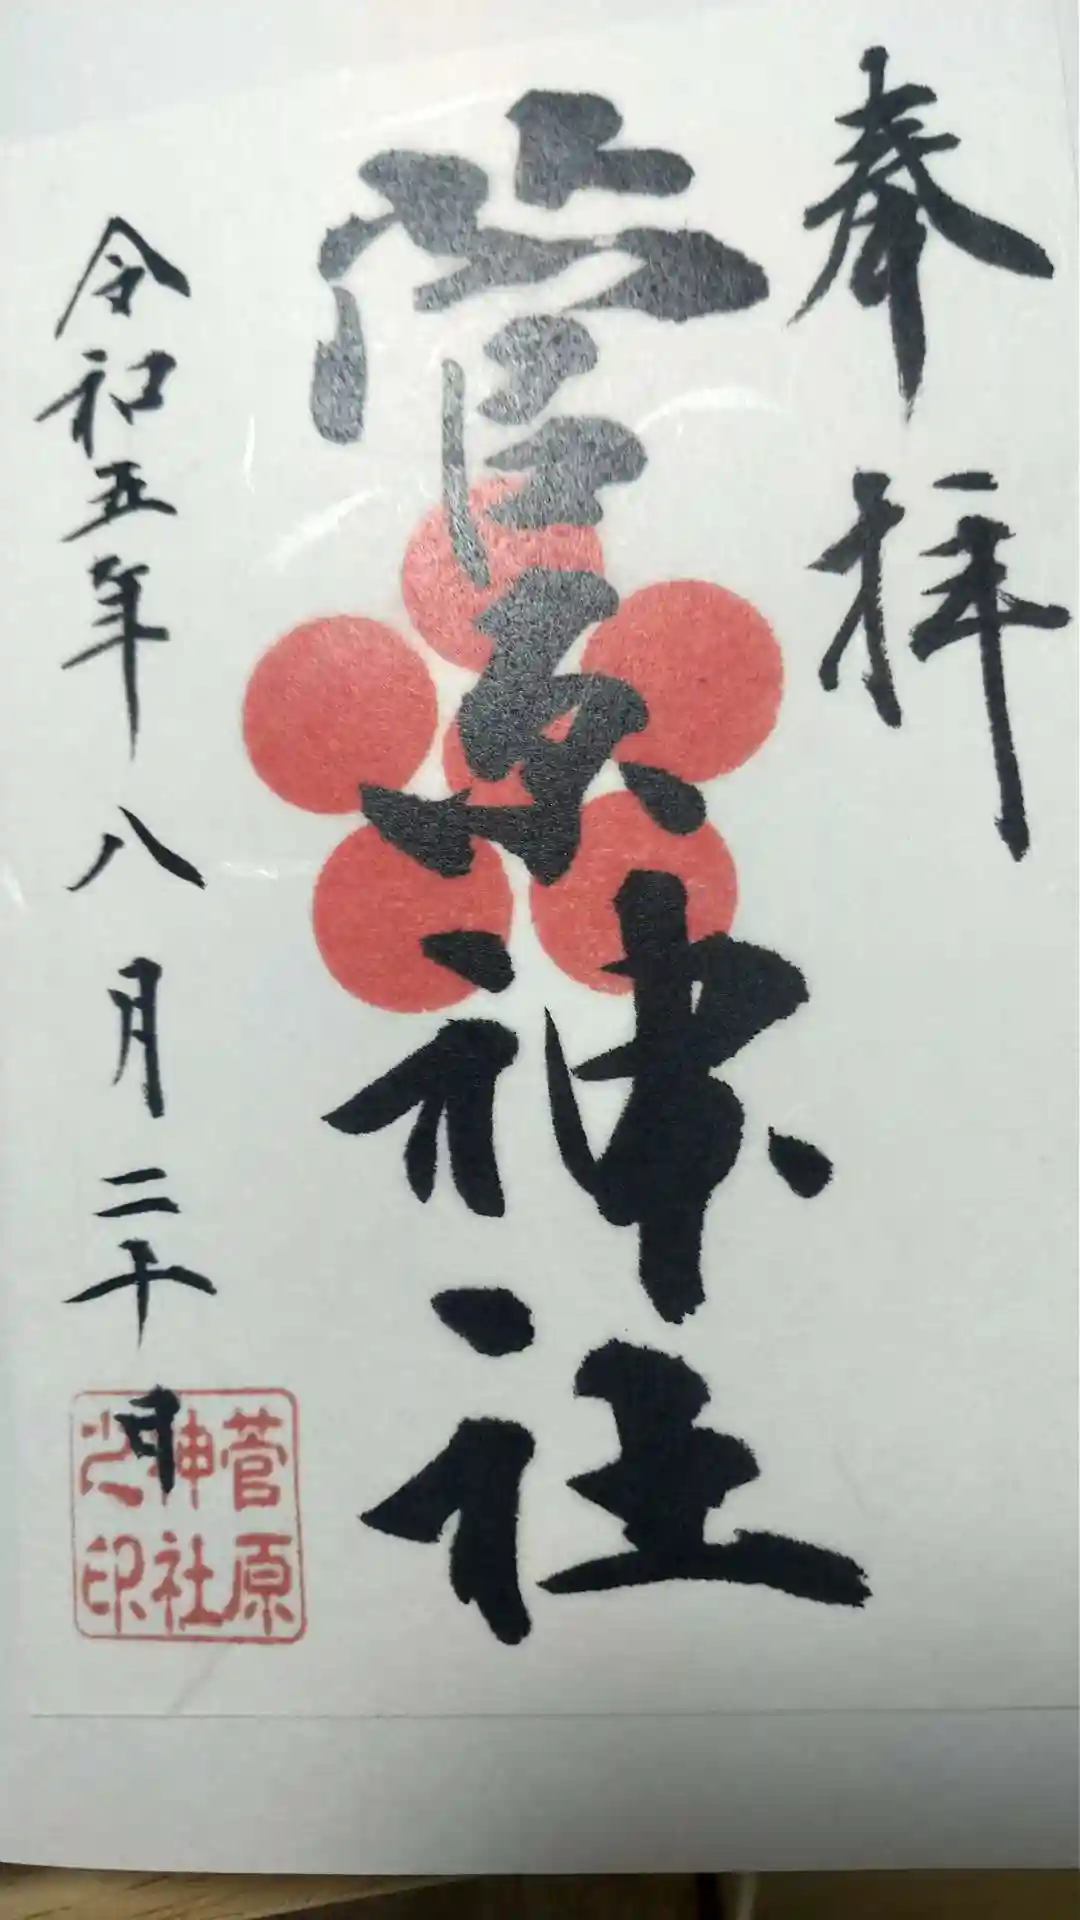 奉拝
菅原神社
令和五年八月二十日
菅原
神社
之印